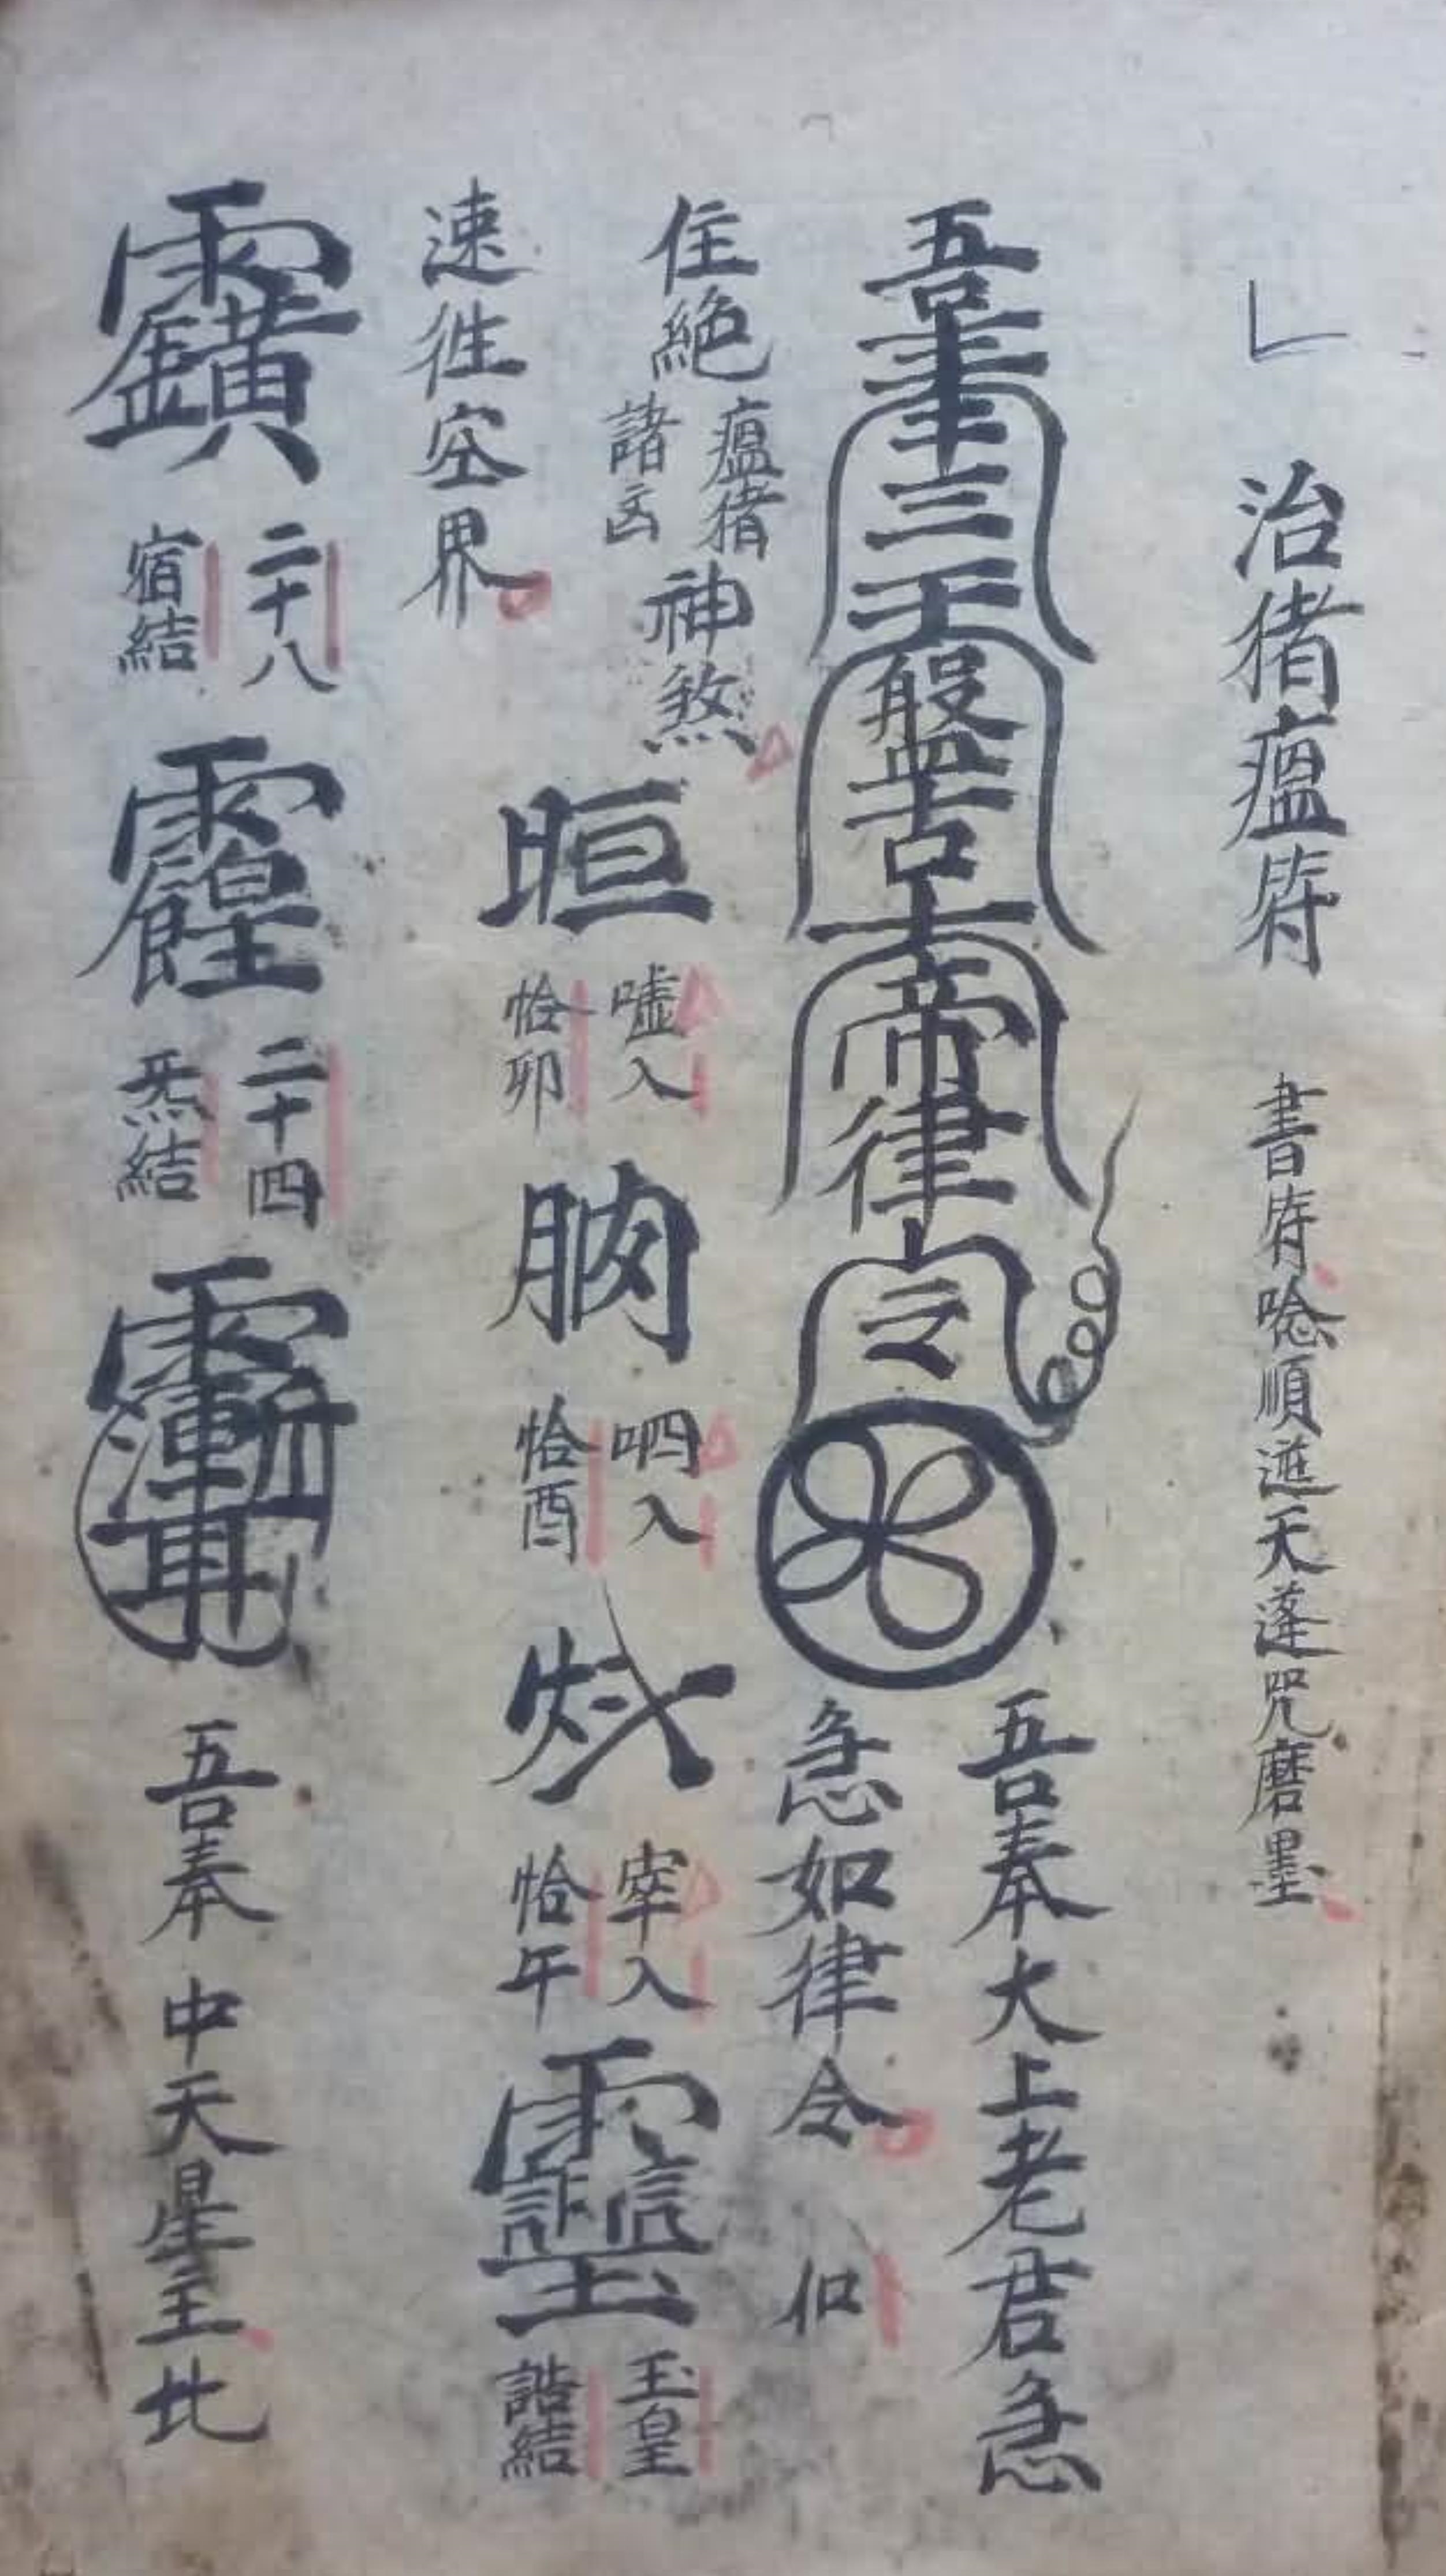 治猪瘟符 書符唸順逰天蓬咒磨墨
吾奉三王盤古帝律令 吾奉太上老君急
急如律令
住絕瘟猪諸凶神煞
速徃空界
噓入恰卯
呬入恰酉
宰入恰午
玉皇誥結
二十八宿結
二十四炁結
吾奉中天星主北